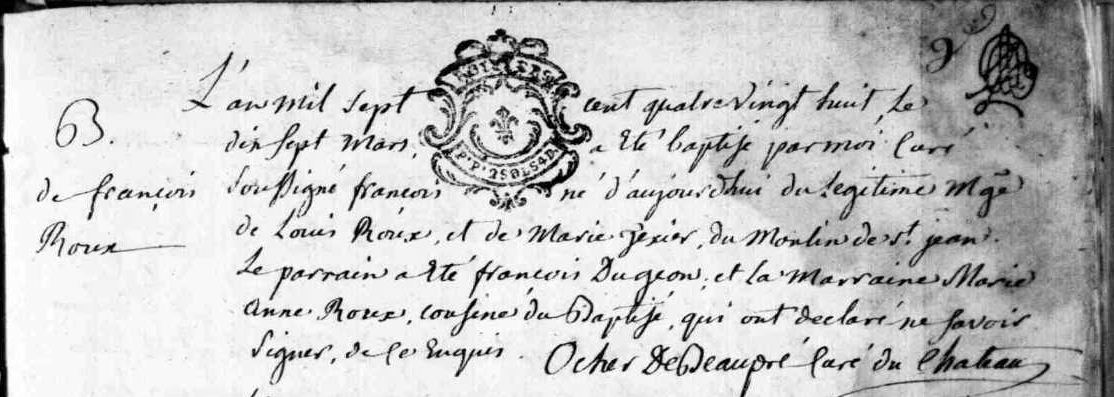 9
B.
de françois
Roux
L'an mil sept cent quatre vingt huit, Le
dix sept Mars, a Eté baptisé par moi Curé
Soussigné françois né d'aujourd'hui du Legitime Mge
de Louis Roux, et de Marie Texier, du Moulin de st. jean.
Le parrain a Eté françois Dugeon, et la Marraine Marie
anne Roux, cousine du Baptisé, qui ont declaré ne savoir
Signer, de ce Enquis. Ocher DeBeaupré Curé du Chateau